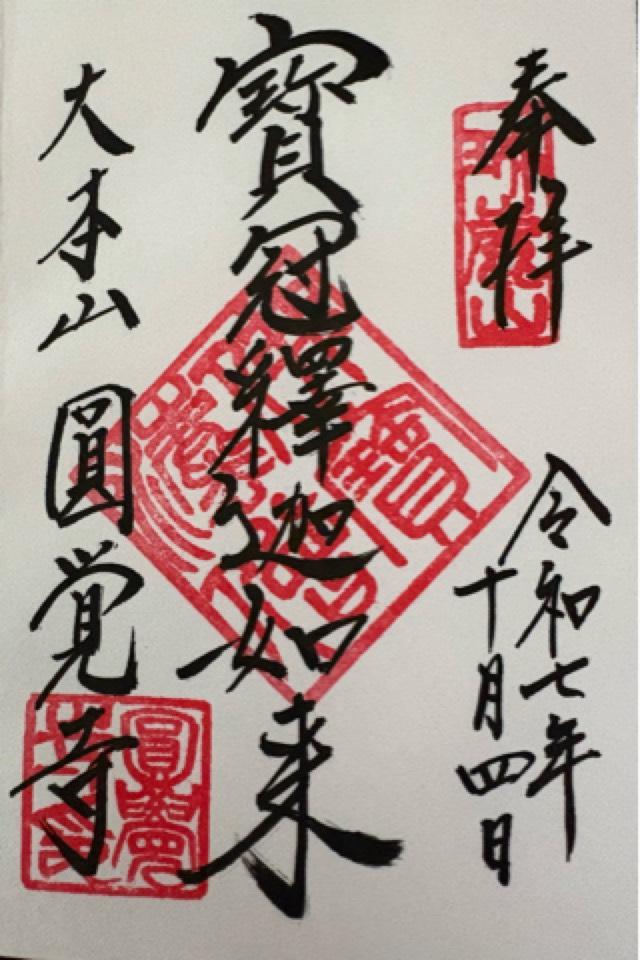 奉拜
令和七年
十月四日
寶冠釋迦如来
大本山圓覚寺
瑞鹿山